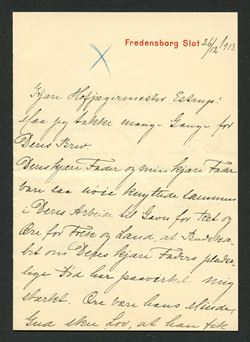 Fredensborg Slot 26/12 1913.
Kjære Hofjægermester Estrup!
Maa jeg takke mange Gange for
Deres Brev.
Deres kjære Fader og min kjære Fader
vare saa nøie knyttede sammen
i Deres Arbeide til Gavn for Ret og
Ære for Folk og Land, at Budska-
bet om Deres kjære Faders pludse-
lige Død har paavirket mig
stærkt. Ære være hans Minde,
Gud skee Lov, at han fik